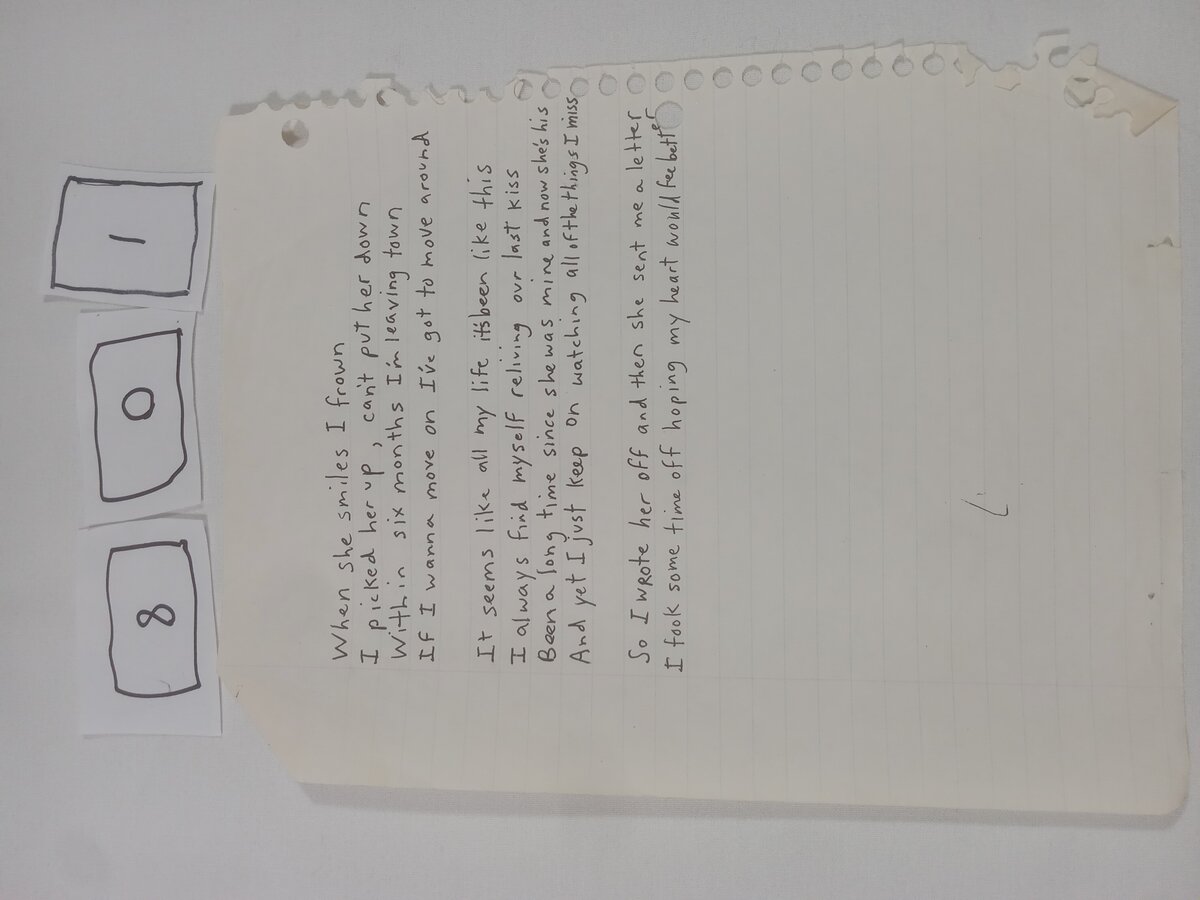 8 0 1
When she smiles I frown
I picked her up, can't put her down
Within six months I'm leaving town
If I wanna move on I've got to move around
It seems like all my life it's been like this
I always find myself reliving our last kiss
Been a long time since she was mine and now she's his
And yet I just keep on watching all of the things I miss
So I wrote her off and then she sent me a letter
I took some time off hoping my heart would fee better